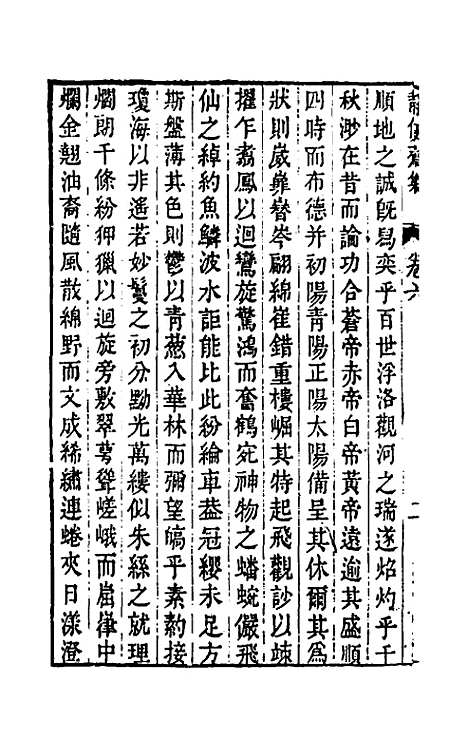 順地之誠旣舄奕乎百世浮洛觀河之瑞遂焰灼乎千
秋渺在昔而論功合蒼帝赤帝白帝黃帝遠逾其盛順
四時而布德并初陽靑陽正陽太陽備呈其休爾其為
狀則崴嶊嶜岑翩綿崔錯重樓崛其特起飛觀訬以竦
擢乍翥鳳以迴鸞旋驚鴻而奮鶴宛神物之蟠蜿儼飛
仙之綽約魚鱗波水詎能比此紛綸車葢冠纓未足方
斯盤薄其色則鬱以青葱入華林而彌望皜乎素葯接
瓊海以非遙若妙鬘之初分黝光萬縷似朱絲之就理
爓朗千條紛狎獵以迴旋旁敷翠萼聳嵯峨而崫嵂中
爛金翹油裔隨風散綿野而文成絺繡連蜷夾日漾澄
卷六
二